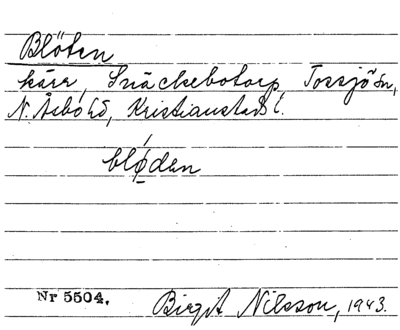 Blöten
kärr, Snäckebotorp, Tossjö sn,
N. Åsbo hd, Kristianstads l.
blǿdan
Nr 5504. Birgit Nilsson, 1943.